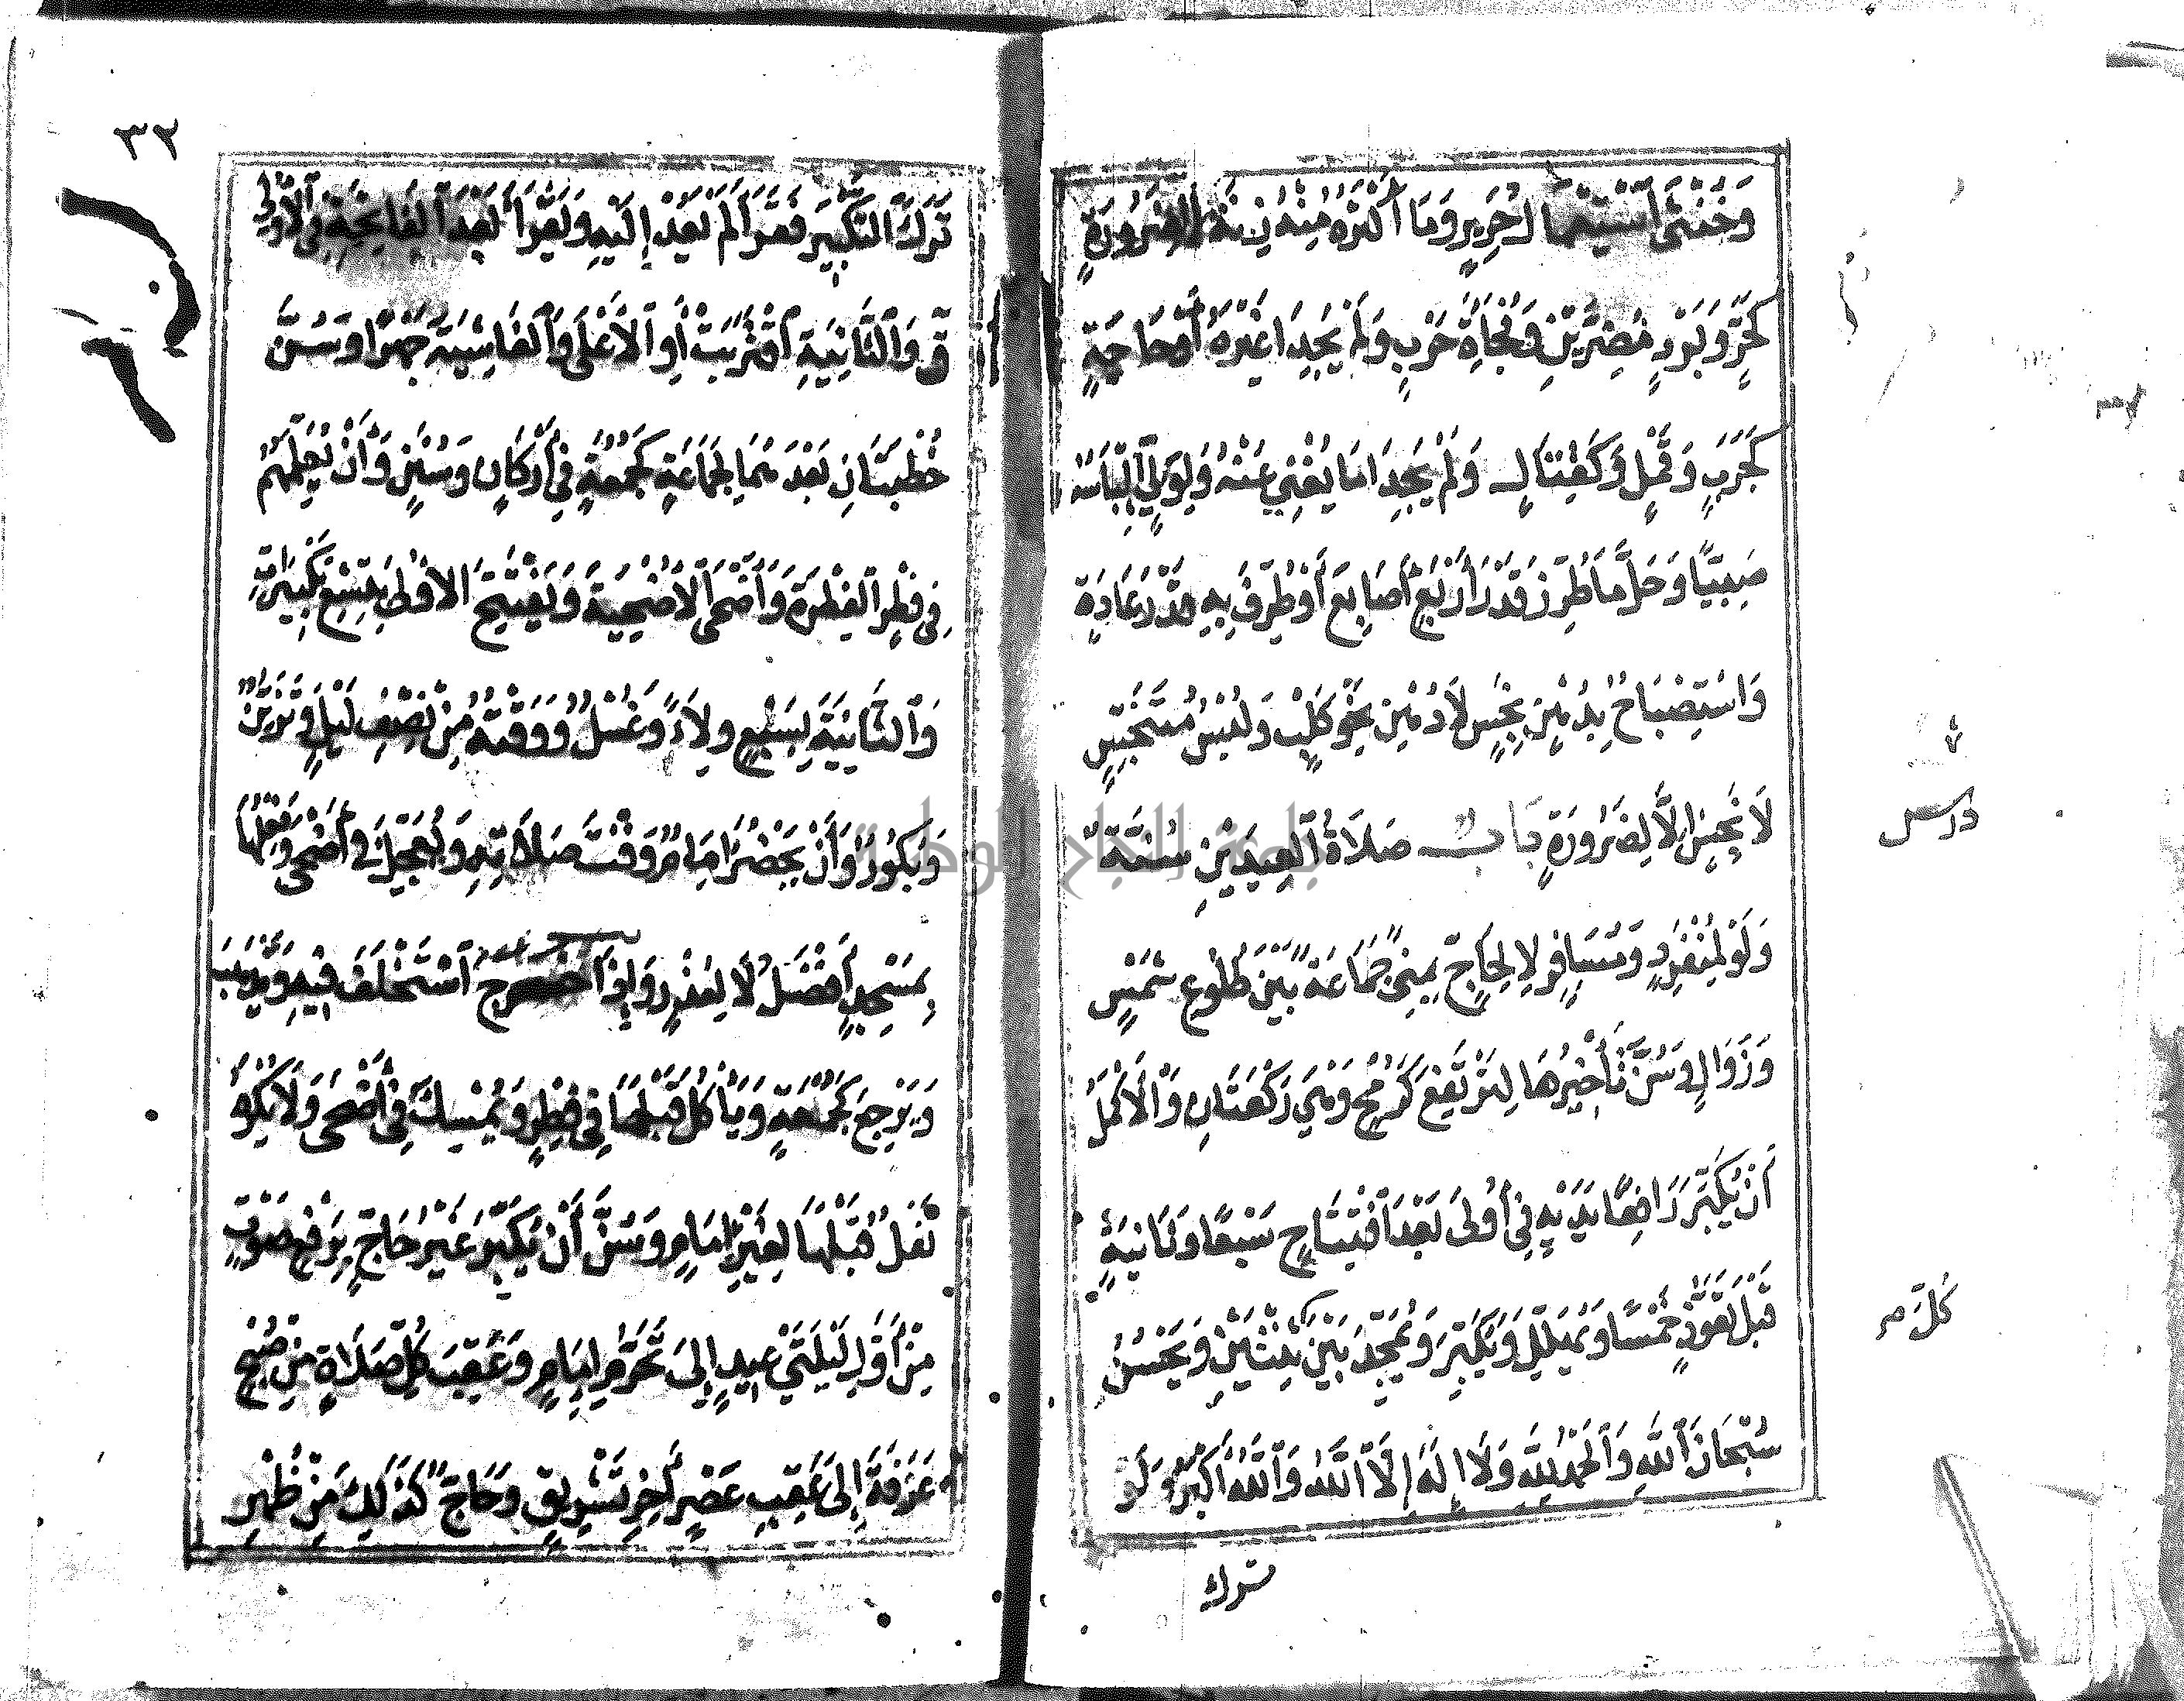 وَخُنْثَى اسْتِعْمَالُ حَرِيرٍ وَمَا أَكْثَرُهُ مِنْهُ زِنَةً لَا لِضَرُورَةٍ
كَحَرٍّ وَبَرْدٍ مُضِرَّيْنِ وَفُجَأَةِ حَرْبٍ وَلَمْ يَجِدَا غَيْرَهُ أَوْ حَاجَةٍ
كَجَرَبٍ وَقُمَّلٍ وَكَقِتَالٍ وَلَمْ يَجِدَا مَا يُغْنِي عَنْهُ وَلِوَلِيٍّ إِلْبَاسُهُ
صَبِيًّا وَحَلَّ مَا طُرِّزَ قَدْرَ أَرْبَعِ أَصَابِعَ أَوْ طُرِّفَ بِهِ قَدْرَ عَادَةٍ
وَاسْتِصْبَاحٌ بِدُهْنٍ نَجِسٍ لَا دُهْنِ نَحْوِ كَلْبٍ وَلُبْسُ مُتَنَجِّسٍ
لَا نَجِسٍ إِلَّا لِضَرُورَةٍ بَابٌ صَلَاةُ الْعِيدَيْنِ سُنَّةٌ
درس
وَلَوْ لِمُنْفَرِدٍ وَمُسَافِرٍ لَا لِحَاجٍّ بِمِنًى جَمَاعَةً بَيْنَ طُلُوعِ شَمْسٍ
وَزَوَالٍ وَسُنَّ تَأْخِيرُهَا لِتَرْتَفِعَ كَرُمْحٍ وَهِيَ رَكْعَتَانِ وَالْأَكْمَلُ
أَنْ يُكَبِّرَ رَافِعًا يَدَيْهِ فِي أُولَى بَعْدَ افْتِتَاحٍ سَبْعًا وَثَانِيَةٍ
قَبْلَ تَعَوُّذٍ خَمْسًا وَيُهَلِّلَ وَيُكَبِّرَ وَيُمَجِّدَ بَيْنَ كُلِّ ثِنْتَيْنِ وَيَحْسُنُ
سُبْحَانَ اللَّهِ وَالْحَمْدُ لِلَّهِ وَلَا إِلَهَ إِلَّا اللَّهُ وَاللَّهُ أَكْبَرُ وَلَوْ
ترك
٣٢
تَرَكَ التَّكْبِيرَ فَقَرَأَ لَمْ يَعُدْ إِلَيْهِ وَيَقْرَأُ بَعْدَ الْفَاتِحَةِ فِي الْأُولَى
ق وَالثَّانِيَةِ اقْتَرَبَتْ أَوِ الْأَعْلَى وَالْغَاشِيَةَ جَهْرًا وَسُنَّ
خُطْبَتَانِ بَعْدَهُمَا لِجَمَاعَةٍ كَجُمُعَةٍ فِي أَرْكَانٍ وَسُنَنٍ وَأَنْ يُعَلِّمَهُمْ
فِي فِطْرٍ الْفِطْرَةَ وَأَضْحَى الْأُضْحِيَةَ وَيَفْتَتِحَ الْأُولَى بِتِسْعِ تَكْبِيرَاتٍ
وَالثَّانِيَةَ بِسَبْعٍ وِلَاءً وَغُسْلٌ وَوَقْتُهُ مِنْ نِصْفِ لَيْلٍ وَتَزَيُّنٌ
وَبُكُورٌ وَأَنْ يَحْضُرَ إِمَامٌ وَقْتَ صَلَاتِهِ وَيُعَجِّلَ فِي أَضْحَى وَفِعْلُهَا
بِمَسْجِدٍ أَفْضَلُ لَا لِعُذْرٍ وَإِذَا خَرَجَ اسْتَخْلَفَ فِيهِ وَيَذْهَبَ
وَيَرْجِعَ كَجُمُعَةٍ وَيَأْكُلَ قَبْلَهَا فِي فِطْرٍ وَيُمْسِكَ فِي أَضْحَى وَلَا يُكْرَهُ
نَفْلٌ قَبْلَهَا لِغَيْرِ إِمَامٍ وَسُنَّ أَنْ يُكَبِّرَ غَيْرُ حَاجٍّ بِرَفْعِ صَوْتٍ
مِنْ أَوَّلِ لَيْلَتَيْ عِيدٍ إِلَى تَحَرُّمِ إِمَامٍ وَعَقِبَ كُلِّ صَلَاةٍ مِنْ صُبْحِ
عَرَفَةَ إِلَى عَقِبِ عَصْرِ آخِرِ تَشْرِيقٍ وَحَاجٌّ كَذَلِكَ مِنْ ظُهْرِ
جامعة النجاح الوطنية